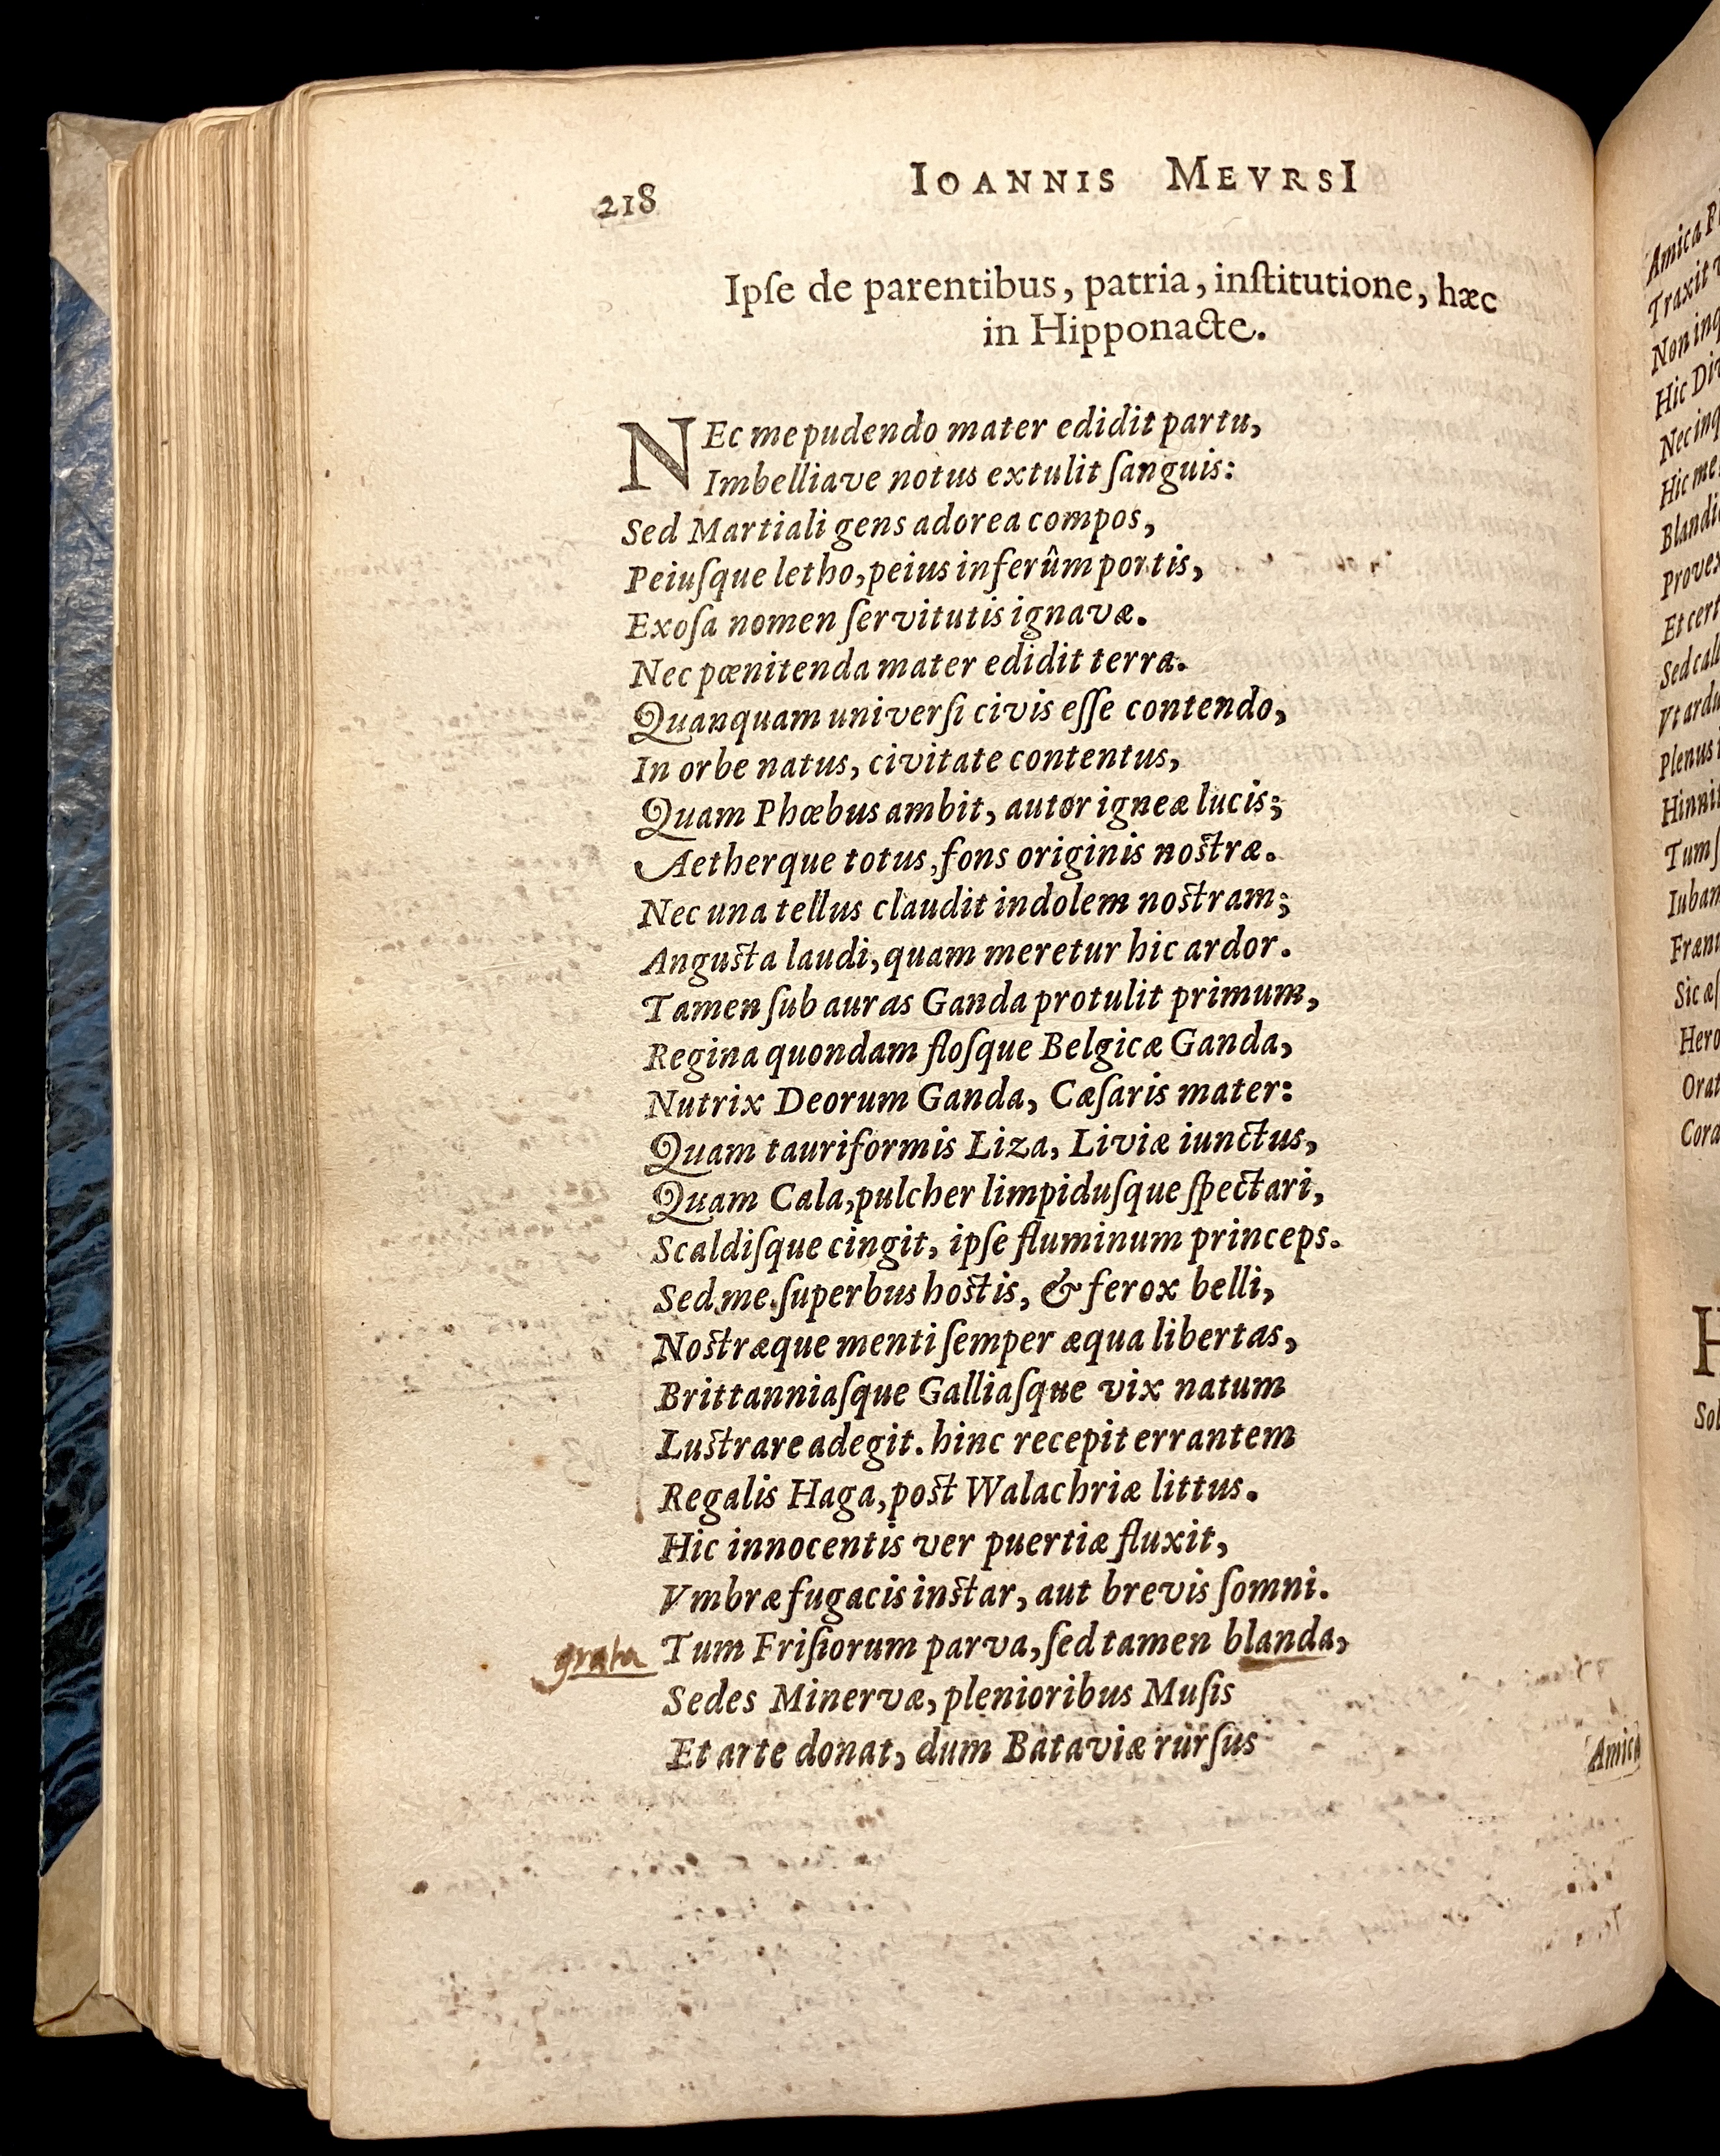 218
IOANNIS MEVRSI
Ipſe de parentibus, patria, inſtitutione, hæc
in Hipponacte.
NEc me pudendo mater edidit partu,
Imbelliave notus extulit ſanguis:
Sed Martiali gens adorea compos,
Peiuſque letho, peius inferûm portis,
Exoſa nomen ſervitutis ignavæ.
Nec pœnitenda mater edidit terra.
Quanquam univerſi civis eſſe contendo,
In orbe natus, civitate contentus,
Quam Phœbus ambit, autor igneæ lucis;
Aetherque totus, fons originis noſtræ.
Nec una tellus claudit indolem noſtram;
Anguſta laudi, quam meretur hic ardor.
Tamen ſub auras Ganda protulit primum,
Regina quondam floſque Belgicæ Ganda,
Nutrix Deorum Ganda, Cæſaris mater:
Quam tauriformis Liza, Liviæ iunctus,
Quam Cala, pulcher limpiduſque ſpectari,
Scaldiſque cingit, ipſe fluminum princeps.
Sed me ſuperbus hoſtis, & ferox belli,
Noſtræque menti ſemper æqua libertas,
Brittanniaſque Galliaſque vix natum
Luſtrare adegit. hinc recepit errantem
Regalis Haga, poſt Walachriæ littus.
Hic innocentis ver puertiæ fluxit,
Vmbræ fugacis inſtar, aut brevis ſomni.
grata Tum Friſiorum parva, ſed tamen blanda,
Sedes Minervæ, plenioribus Muſis
Et arte donat, dum Bataviæ rurſus
Amica
Amica
Traxit
Non inq
Hic
Nec inq
Hic me
Blandi
Provex
Et cert
Sed call
Vt ardu
Plenus
Hinnit
Tum
Iuban
Fræn
Sic æſ
Hero
Orat
Cora
H
Sol